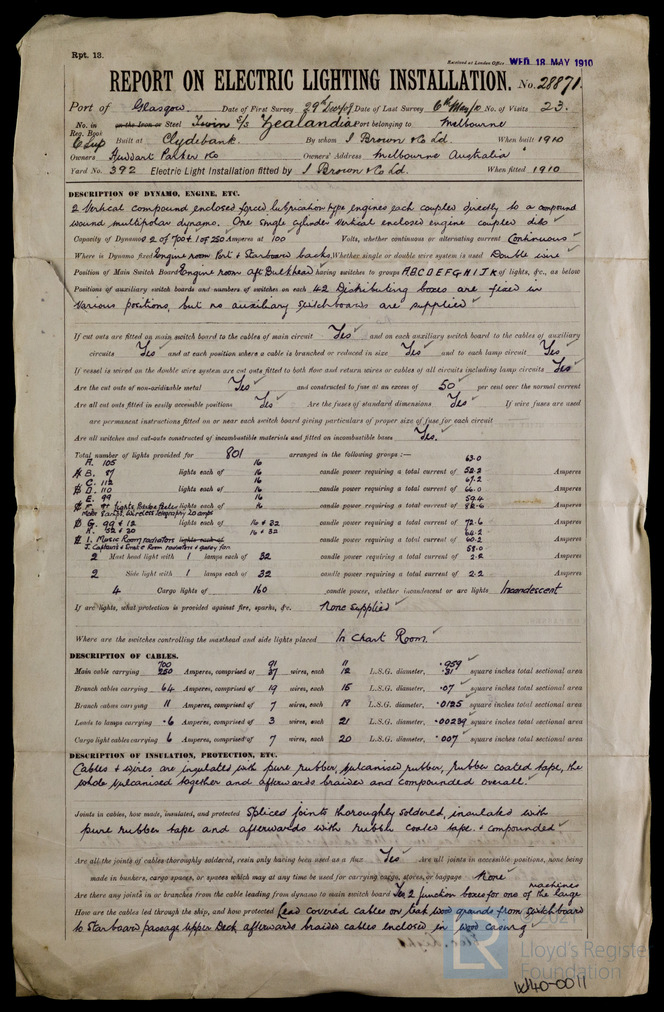 Rpt. 13.
Received at London Office WED. 18 MAY 1910
REPORT ON ELECTRIC LIGHTING INSTALLATION. No. 28871.
Port of Glasgow Date of First Survey 29th Date of Last Survey 6th May/10 No. of Visits 23.
No. in Reg. Book on the Iron or Steel Twin S/S "Zealandia" Port belonging to Melbourne
6 Sup Built at Clydebank. By whom J Brown & Co Ld. When built 1910
Owners Huddart Parker & Co Owners' Address Melbourne Australia
Yard No. 392 Electric Light Installation fitted by J Brown & Co Ld. When fitted 1910
DESCRIPTION OF DYNAMO, ENGINE, ETC.
2 Vertical compound enclosed forced lubrication type engines each coupled directly to a compound
wound multipolar dynamo. One single cylinder vertical enclosed engine coupled ditto
Capacity of Dynamos 2 of 700 & 1 of 250 Amperes at 100 Volts, whether continuous or alternating current Continuous
Where is Dynamo fixed Engine room Port & Starboard backs Whether single or double wire system is used Double wire
Position of Main Switch Board Engine room aft Bulkhead having switches to groups A B C D E F G H I J K of lights, &c., as below
Positions of auxiliary switch boards and numbers of switches on each 42 Distributing boxes are fixed in
various positions, but no auxiliary switchboards are supplied
If cut outs are fitted on main switch board to the cables of main circuit Yes and on each auxiliary switch board to the cables of auxiliary
circuits Yes and at each position where a cable is branched or reduced in size Yes and to each lamp circuit Yes
If vessel is wired on the double wire system are cut outs fitted to both flow and return wires or cables of all circuits including lamp circuits Yes
Are the cut outs of non-oxidizable metal Yes and constructed to fuse at an excess of 50 per cent over the normal current
Are all cut outs fitted in easily accessible positions Yes Are the fuses of standard dimensions Yes If wire fuses are used
are permanent instructions fitted on or near each switch board giving particulars of proper size of fuse for each circuit
Are all switches and cut-outs constructed of incombustible materials and fitted on incombustible bases Yes.
Total number of lights provided for 801 arranged in the following groups :—
A. 105 16 63.0
B. 87 lights each of 16 candle power requiring a total current of 52.2 Amperes
C. 112 16 67.2
D. 110 lights each of 16 candle power requiring a total current of 66.0 Amperes
E. 99 16 59.4
lights each of 16 candle power requiring a total current of Amperes
Wireless Telegraphy 20 amps
G. 99 & 12 lights each of 16 & 32 candle power requiring a total current of 72.6 Amperes
16 & 32
I. Music Room radiators lights each of candle power requiring a total current of 60.2 Amperes
58.0
2 Mast head light with 1 lamps each of 32 candle power requiring a total current of 2.2 Amperes
2 Side light with 1 lamps each of 32 candle power requiring a total current of 2.2 Amperes
4 Cargo lights of 160 candle power, whether incandescent or arc lights Incandescent
If arc lights, what protection is provided against fire, sparks, &c. None supplied
Where are the switches controlling the masthead and side lights placed In Chart Room.
DESCRIPTION OF CABLES.
700 91 11 .959
Main cable carrying 250 Amperes, comprised of 37 wires, each 12 L.S.G. diameter, .31 square inches total sectional area
Branch cables carrying 64 Amperes, comprised of 19 wires, each 15 L.S.G. diameter, .07 square inches total sectional area
Branch cables carrying 11 Amperes, comprised of 7 wires, each 18 L.S.G. diameter, .0125 square inches total sectional area
Leads to lamps carrying .6 Amperes, comprised of 3 wires, each 21 L.S.G. diameter, .00239 square inches total sectional area
Cargo light cables carrying 6 Amperes, comprised of 7 wires, each 20 L.S.G. diameter, .007 square inches total sectional area
DESCRIPTION OF INSULATION, PROTECTION, ETC.
Cables & wires are insulated with pure rubber, vulcanised rubber, rubber coated tape, the
whole vulcanised together and afterwards braided and compounded overall.
Joints in cables, how made, insulated, and protected Spliced joints thoroughly soldered, insulated with
pure rubber tape and afterwards with rubber coated tape. & compounded
Are all the joints of cables thoroughly soldered, resin only having been used as a flux Yes Are all joints in accessible positions, none being
made in bunkers, cargo spaces, or spaces which may at any time be used for carrying cargo, stores, or baggage None
Are there any joints in or branches from the cable leading from dynamo to main switch board Yes 2 junction boxes for one of the large machines
How are the cables led through the ship, and how protected Lead covered cables on teak wood grounds from switchboard
to Starboard passage Upper Deck afterwards braided cables enclosed in wood casing
© 2021
LR
Lloyd's Register
Foundation
W140-0011